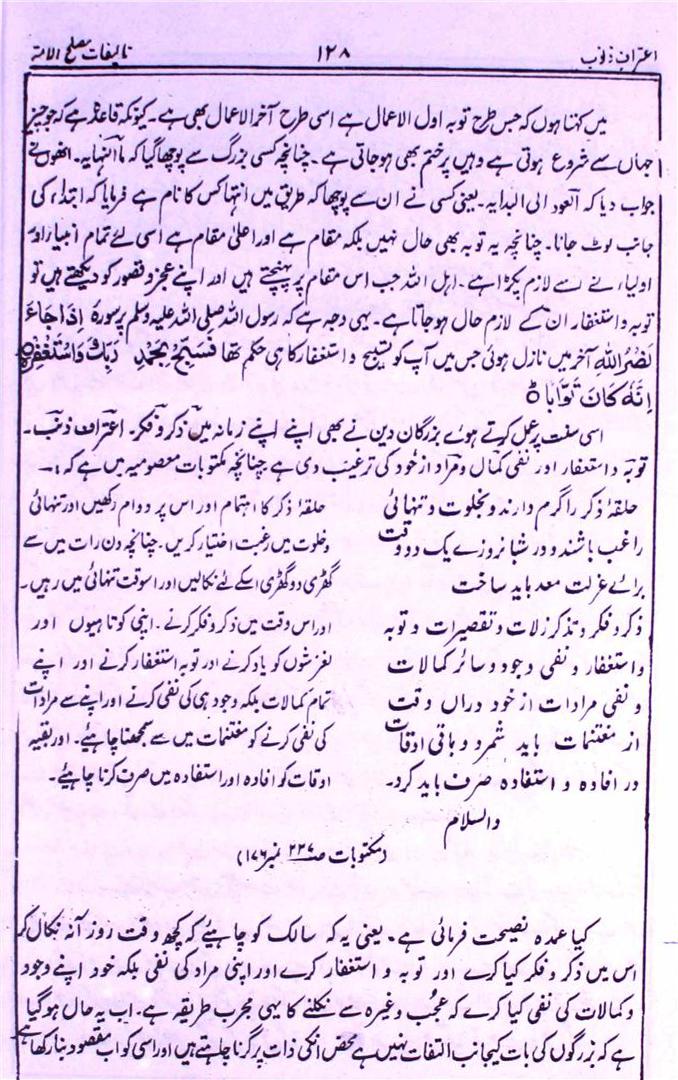 اعتراف ذنوب
۱۲۸
تالیفات مصلح الامة
میں کہتا ہوں کہ جس طرح توبہ اول الاعمال ہے اسی طرح آخر الاعمال بھی ہے۔ کیونکہ قاعدہ ہے کہ جو چیز
جہاں سے شروع ہوتی ہے وہیں پر ختم بھی ہو جاتی ہے۔ چنانچہ کسی بزرگ سے پوچھا گیا کہ ما النہایہ۔ انھوں نے
جواب دیا کہ العود الی البدایہ۔ یعنی کسی نے ان سے پوچھا کہ طریق میں انتہا کس کا نام ہے فرمایا کہ ابتداء کی
جانب لوٹ جانا۔ چنانچہ یہ توبہ بھی حال نہیں بلکہ مقام ہے اور اعلیٰ مقام ہے اسی لئے تمام انبیاء اور
اولیاء نے اسے لازم پکڑا ہے۔ اہل اللہ جب اس مقام پر پہنچتے ہیں اور اپنے عجز و قصور کو دیکھتے ہیں تو
توبہ و استغفار ان کے لازم حال ہو جاتا ہے۔ یہی وجہ ہے کہ رسول اللہ صلی اللہ علیہ وسلم پر سورۂ اِذَا جَاءَ
نَصْرُ اللّٰهِ آخر میں نازل ہوئی جس میں آپ کو تسبیح و استغفار کا ہی حکم تھا فَسَبِّحْ بِحَمْدِ رَبِّكَ وَاسْتَغْفِرْهُ
اِنَّهٗ كَانَ تَوَّابًا
اسی سنت پر عمل کرتے ہوئے بزرگان دین نے بھی اپنے اپنے زمانہ میں ذکر و فکر۔ اعتراف ذنب۔
توبہ و استغفار اور نفی کمال و مراد از خود کی ترغیب دی ہے چنانچہ مکتوبات معصومیہ میں ہے کہ :۔
حلقۂ ذکر را گرم دارند و بخلوت و تنہائی
راغب باشند و در شبانروزے یک دو وقت
برائے عزلت معد باید ساخت
ذکر و فکر و تذکر زلات و تقصیرات و توبہ
و استغفار و نفی وجود و سائر کمالات
و نفی مرادات از خود دراں وقت
از مغتنمات باید شمرد و باقی اوقات
در افادہ و استفادہ صرف باید کرد۔
والسلام
حلقۂ ذکر کا اہتمام اور اس پر دوام رکھیں اور تنہائی
و خلوت میں رغبت اختیار کریں۔ چنانچہ دن رات میں سے
گھڑی دو گھڑی اسکے لئے نکالیں اور اسوقت تنہائی میں رہیں۔
اور اس وقت میں ذکر و فکر کرنے۔ اپنی کوتاہیوں اور
لغزشوں کو یاد کرنے اور توبہ استغفار کرنے اور اپنے
تمام کمالات بلکہ وجود ہی کی نفی کرنے اور اپنے سے مرادات
کی نفی کرنے کو مغتنمات میں سے سمجھنا چاہیئے۔ اور بقیہ
اوقات کو افادہ اور استفادہ میں صرف کرنا چاہیئے۔
(مکتوبات صـ۲۲۷ نمبر ۱۷۶)
کیا عمدہ نصیحت فرمائی ہے۔ یعنی یہ کہ سالک کو چاہیئے کہ کچھ وقت روز آنہ نکال کر
اس میں ذکر و فکر کیا کرے اور توبہ و استغفار کرے اور اپنی مراد کی نفی بلکہ خود اپنے وجود
و کمالات کی نفی کیا کرے کہ عجُب وغیرہ سے نکلنے کا یہی مجرب طریقہ ہے۔ اب یہ حال ہو گیا
ہے کہ بزرگوں کی بات کیجانب التفات نہیں ہے محض انکی ذات پر گرنا چاہتے ہیں اور اسی کو اب مقصود بنا رکھا ہے